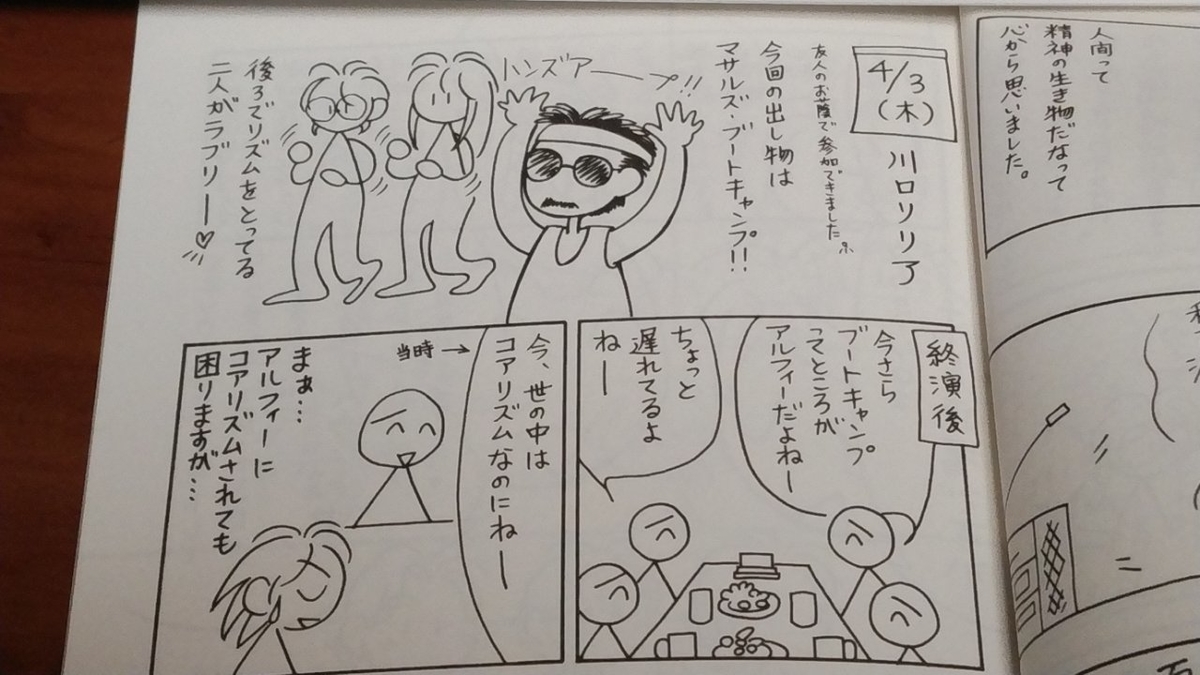 人間って
精神の生き物だなって
心から思いました。
4/3
(木)
川口リリア
友人のお蔭で参加できました
今回の出し物は
マサルズ・ブートキャンプ!!
ハンズアーープ!!
後ろでリズムをとってる
二人がラブリー♡
終演後
今さら
ブートキャンプ
ってところが
アルフィーだよねー
ちょっと
遅れてるよ
ねー
今、世の中は
コアリズムなのにねー
当時→
まぁ…
アルフィーに
コアリズムされても
困りますが…